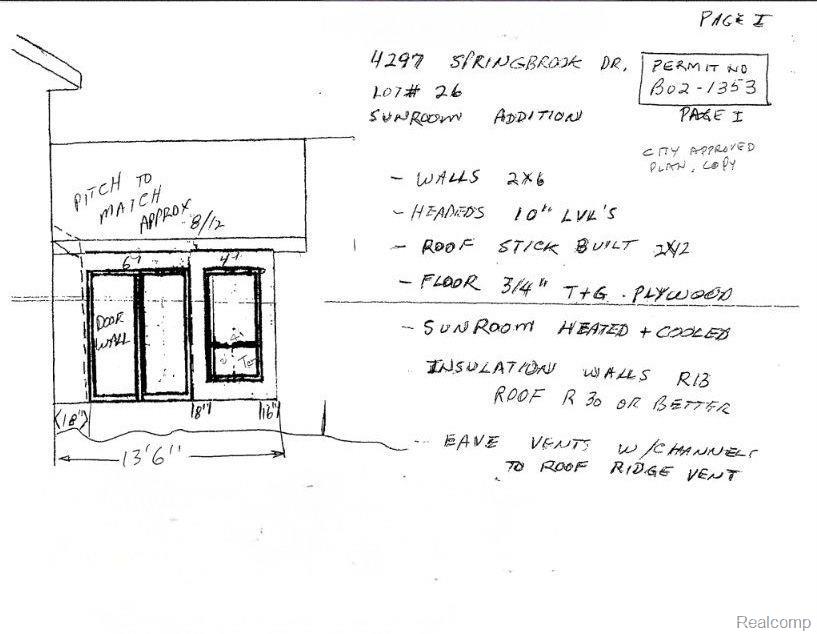 PAGE I
4297 SPRINGBROOK DR.
LOT# 26
SUNROOM ADDITION
PERMIT NO
B02-1353
PAGE I
CITY APPROVED
PLAN, COPY
- WALLS 2x6
- HEADERS 10" LVL'S
- ROOF STICK BUILT 2x12
- FLOOR 3/4" T+G. PLYWOOD
- SUNROOM HEATED + COOLED
INSULATION WALLS R13
ROOF R 30 OR BETTER
- EAVE VENTS W/CHANNELS
TO ROOF RIDGE VENT
PITCH TO
MATCH
APPROX
8/12
6'
4'
DOOR
WALL
18"
8"
16"
13'6"
Realcomp